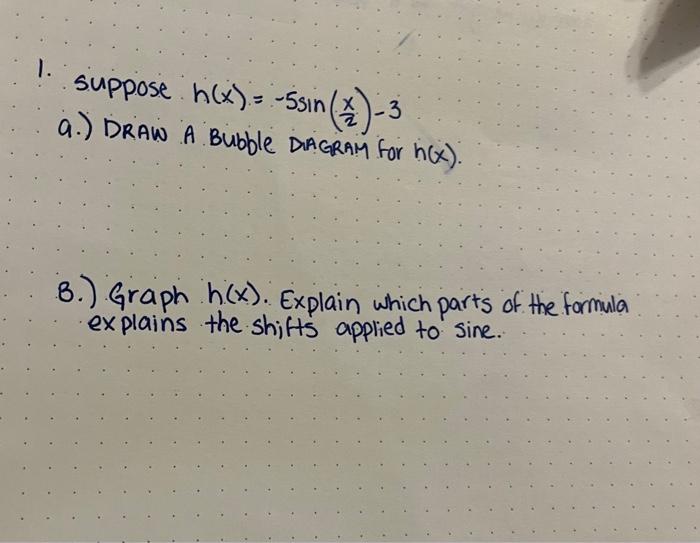 1. suppose h(x) = -5sin(x/2)-3
a.) DRAW A Bubble DIAGRAM for h(x).
B.) Graph h(x). Explain which parts of the formula
explains the shifts applied to sine.